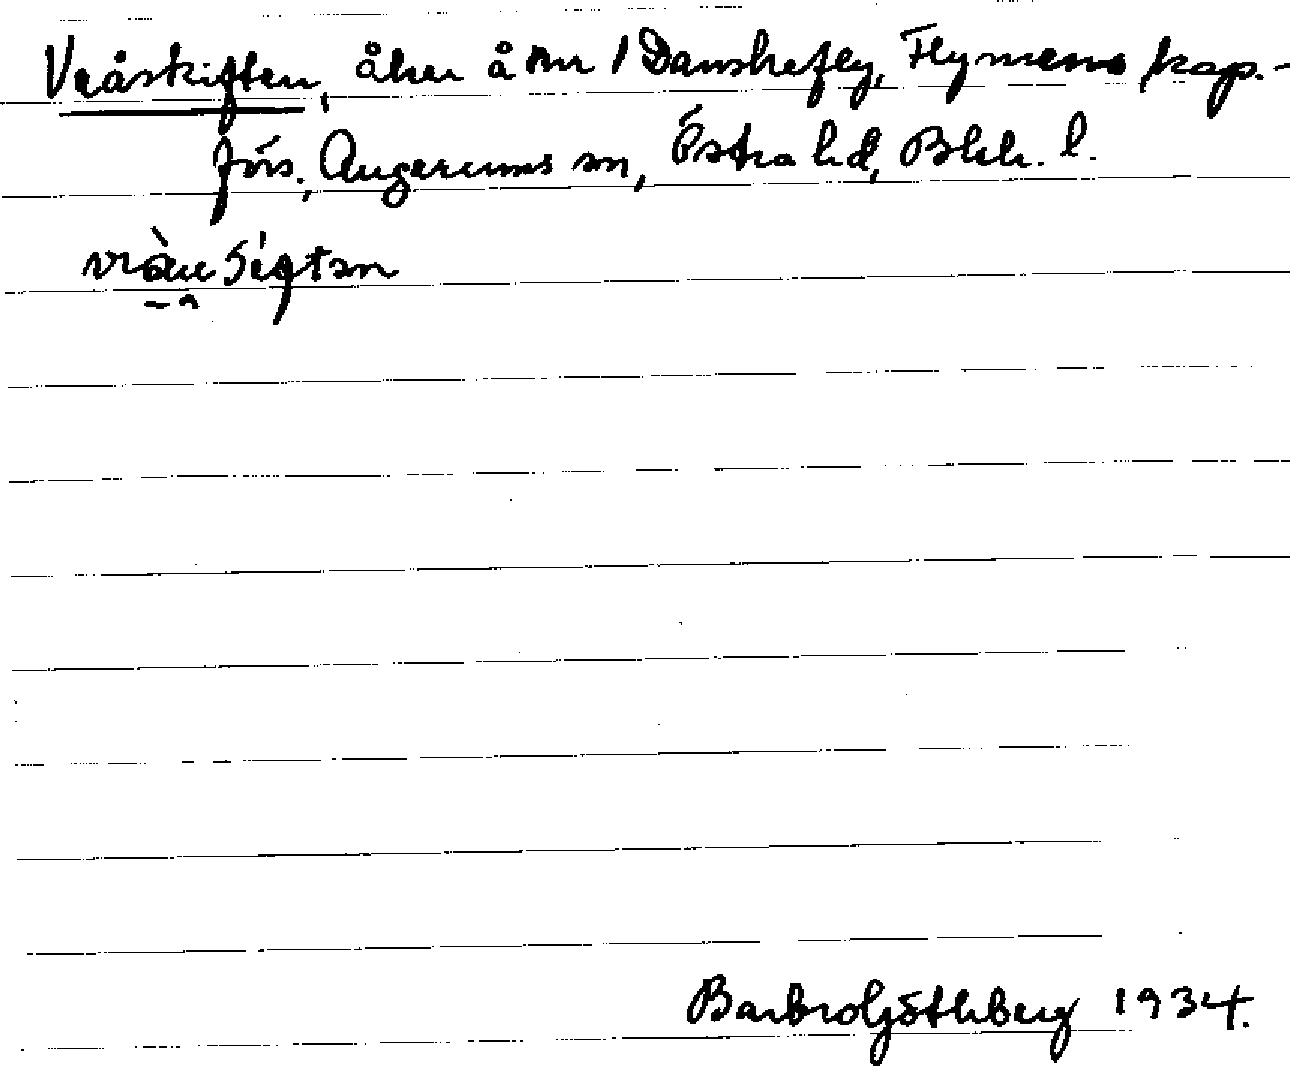 Vråskiften, åker å nr 1 Danskefly, Flymens kap.-
förs., Augerums sn, Östra hd, Blek. l.
Barbro Göthberg 1934.